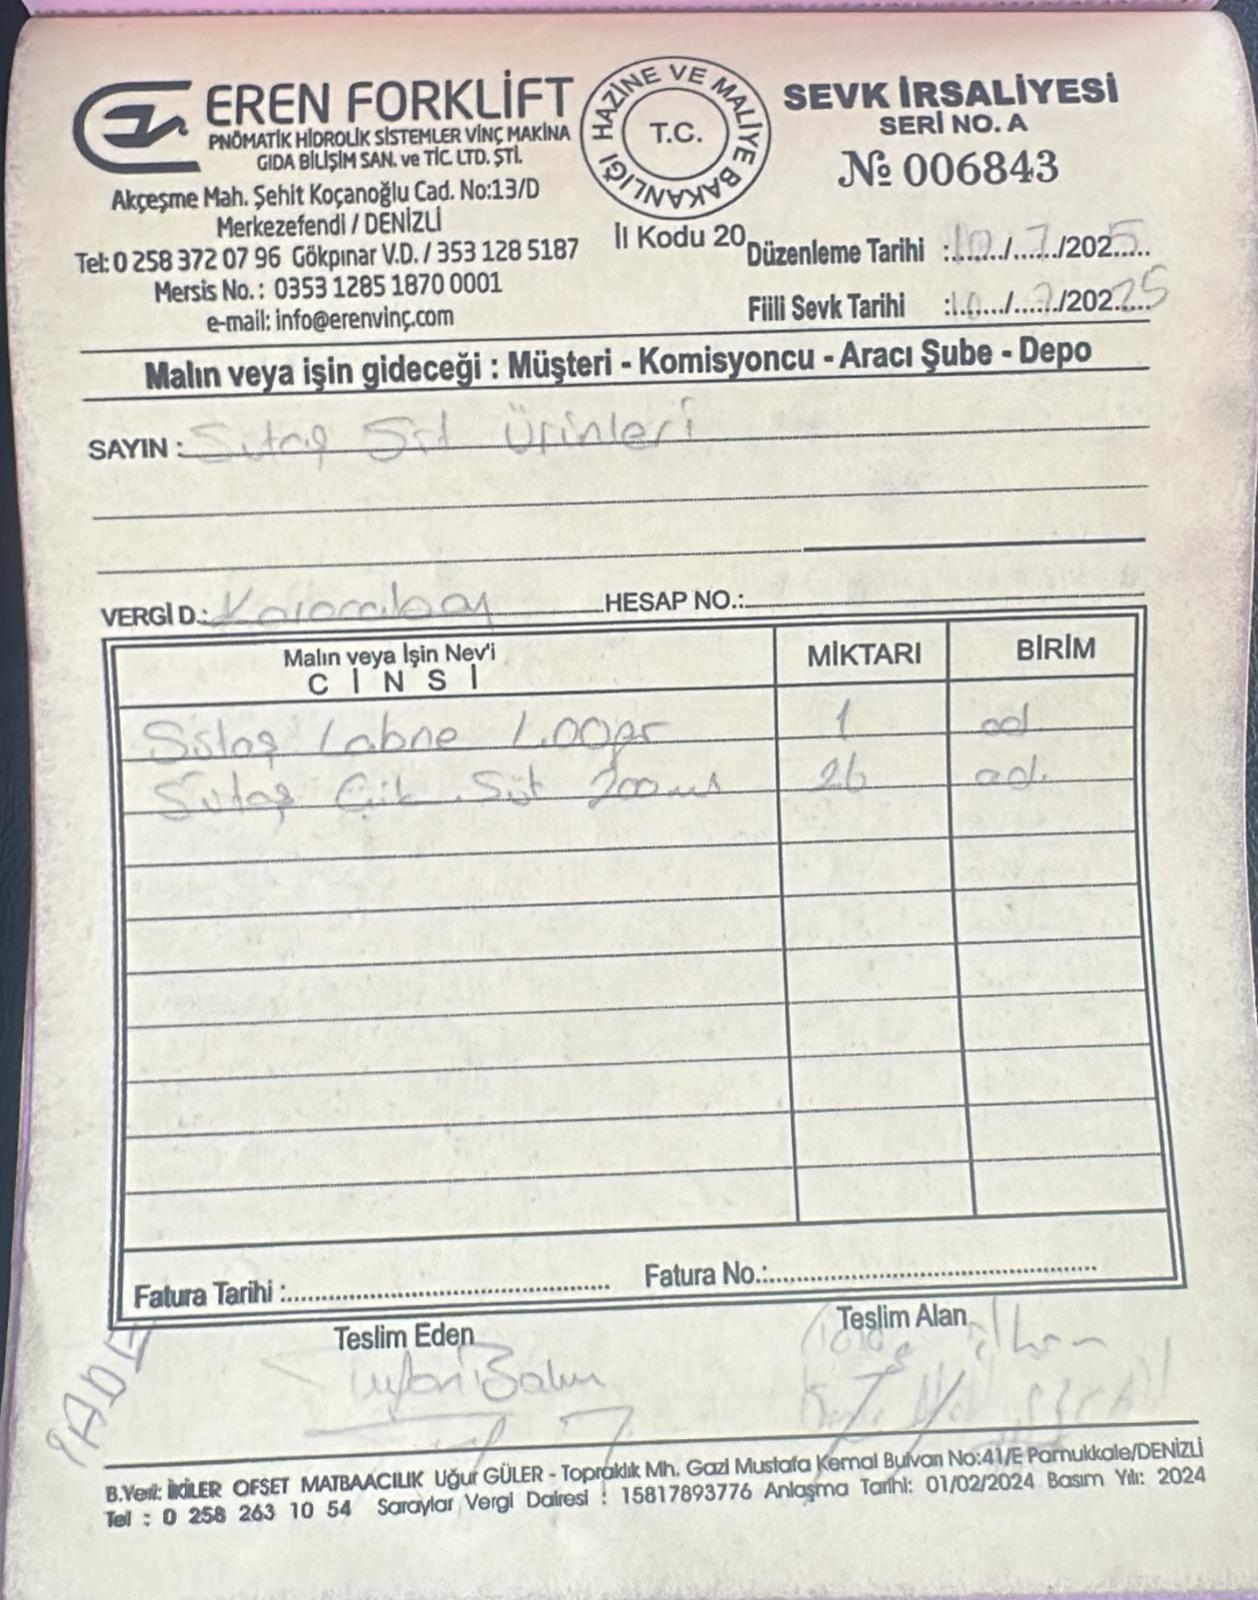 EREN FORKLİFT
PNÖMATİK HİDROLİK SİSTEMLER VİNÇ MAKİNA
GIDA BİLİŞİM SAN. ve TİC. LTD. ŞTİ.
Akçeşme Mah. Şehit Koçanoğlu Cad. No:13/D
Merkezefendi / DENİZLİ
Tel: 0 258 372 07 96 Gökpınar V.D. / 353 128 5187
Mersis No.: 0353 1285 1870 0001
e-mail: info@erenvinç.com
T.C.
HAZİNE VE MALİYE BAKANLIĞI
İl Kodu 20
SEVK İRSALİYESİ
SERİ NO. A
№ 006843
Düzenleme Tarihi : 10 / 7 / 2025
Fiili Sevk Tarihi : 10 / 7 / 202 25
Malın veya işin gideceği : Müşteri - Komisyoncu - Aracı Şube - Depo
SAYIN : Sütaş Süt Ürünleri
VERGİ D.: HESAP NO.:
Malın veya İşin Nev'i
CİNSİ MİKTARI BİRİM
Sütaş Labne 1 ad
Sütaş Çik. Süt 200 26 ad.
Fatura Tarihi : Fatura No.:
Teslim Eden Teslim Alan
İADE
B.Yeri: İKİLER OFSET MATBAACILIK Uğur GÜLER - Topraklık Mh. Gazi Mustafa Kemal Bulvarı No:41/E Pamukkale/DENİZLİ
Tel : 0 258 263 10 54 Saraylar Vergi Dairesi : 15817893776 Anlaşma Tarihi: 01/02/2024 Basım Yılı: 2024